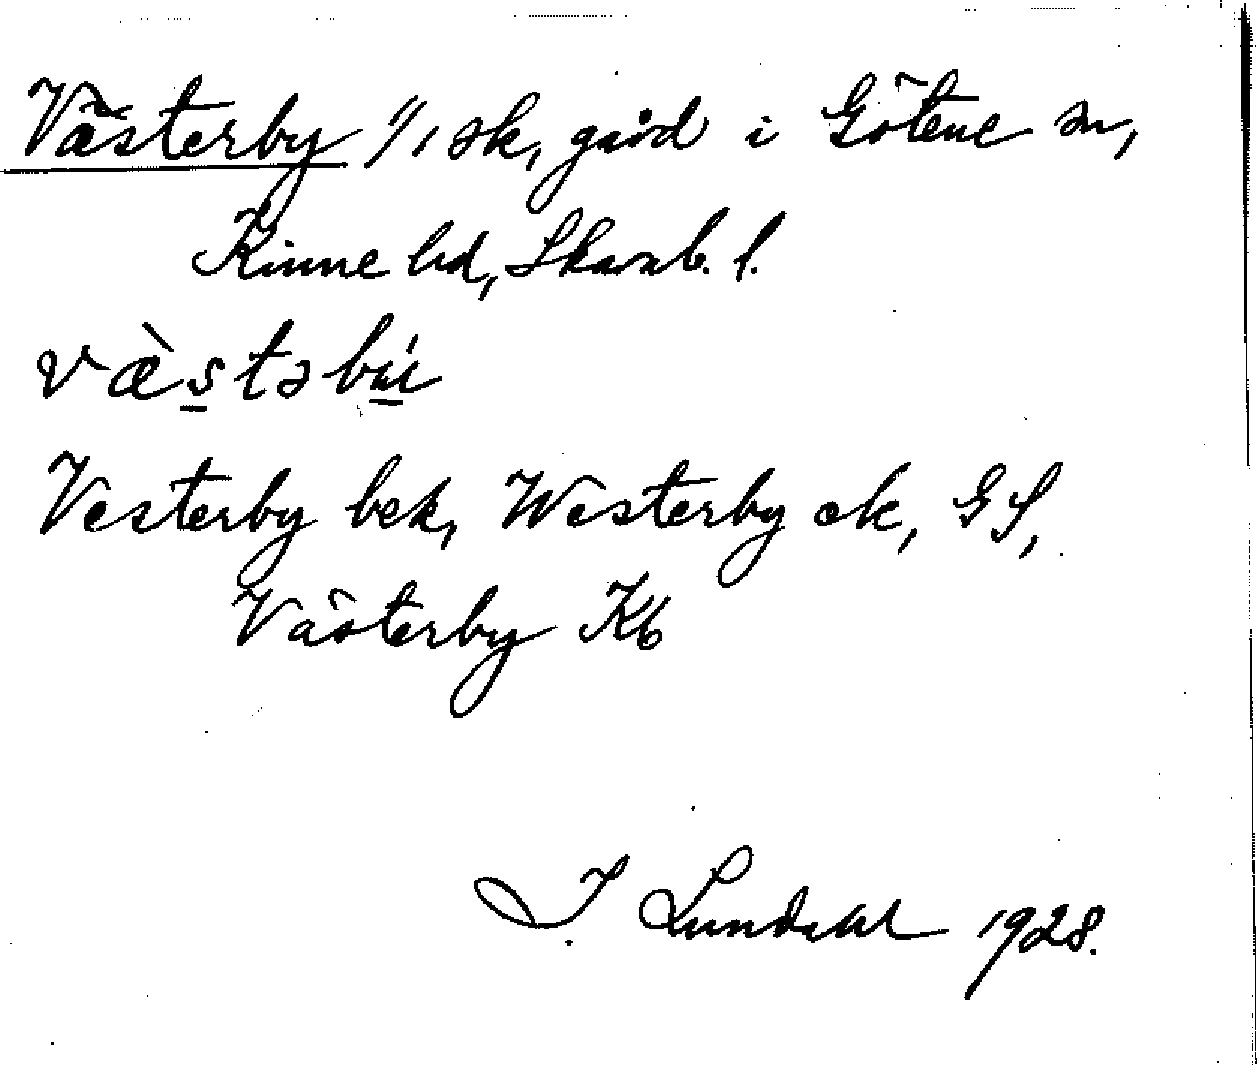 Västerby 1/1 sk, gård i Götene sn,
Kinne hd, Skarab. l.
væ̀stəbú
Vesterby bek, Westerby ek, GS,
Västerby Kb
I. Lundahl 1928.